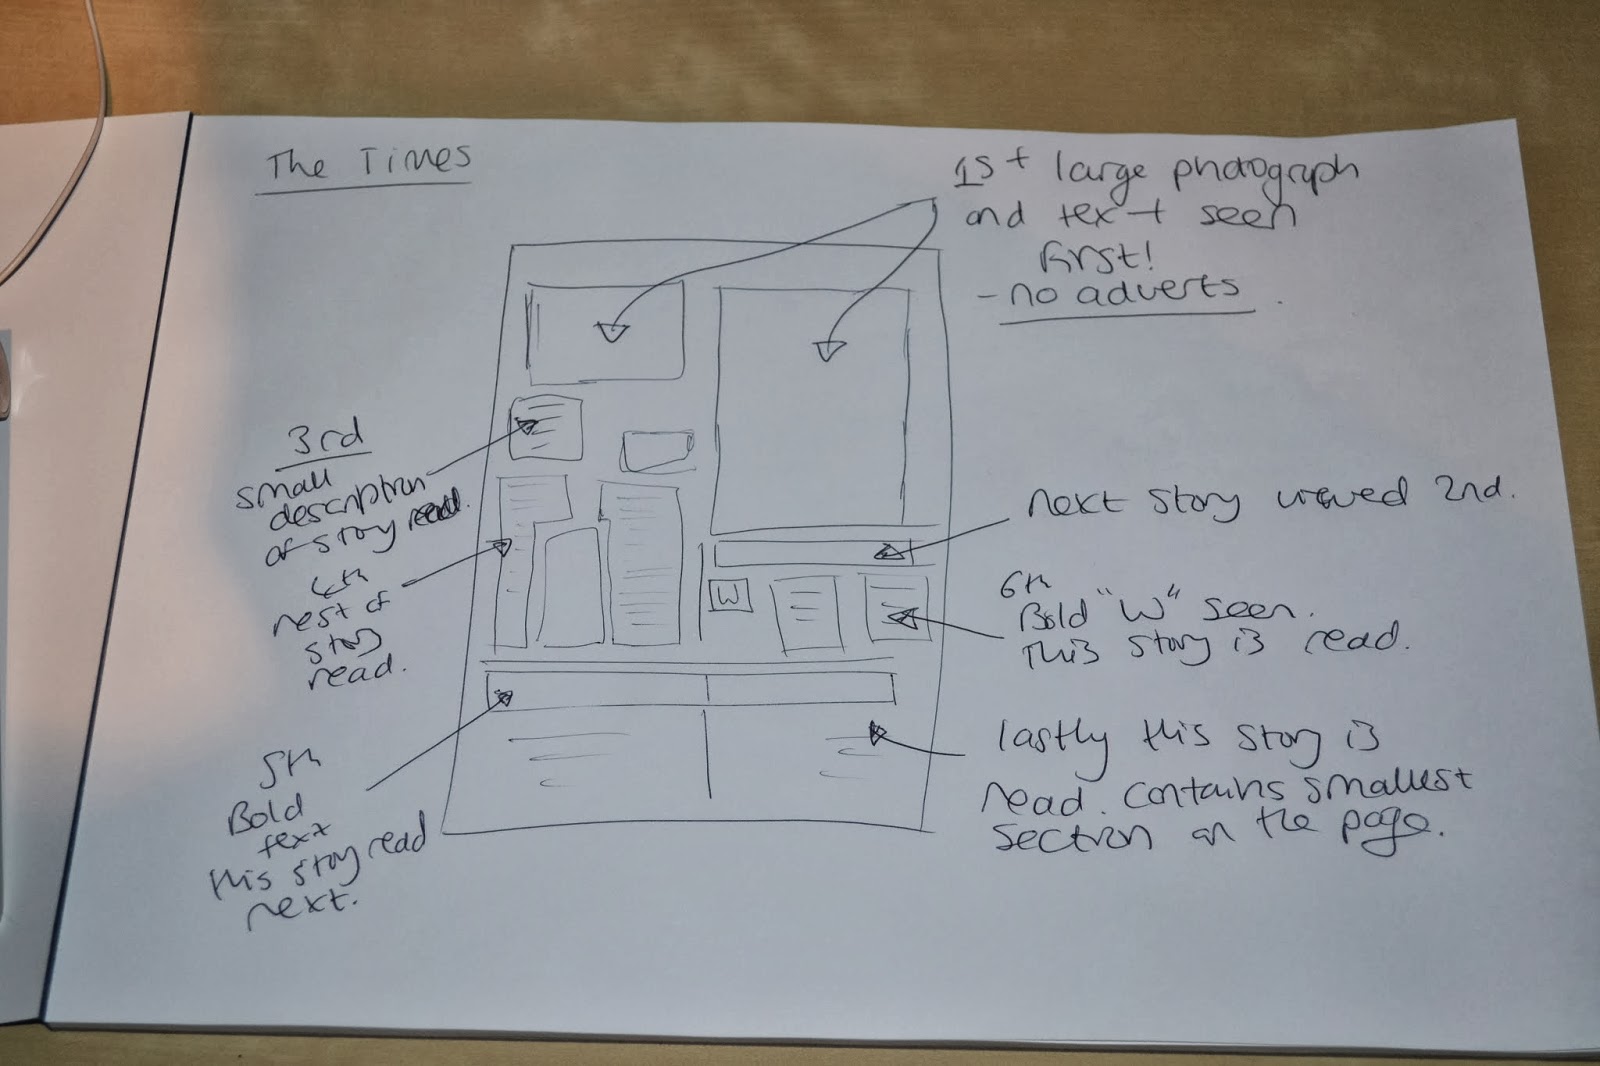 The Times
1st large photograph
and text seen
first!
- no adverts.
3rd
small
description
of story read.
4th
rest of
story
read.
5th
Bold
text
this story read
next.
next story viewed 2nd.
W
6th
Bold "W" seen.
This story is read.
lastly this story is
read. contains smallest
section on the page.